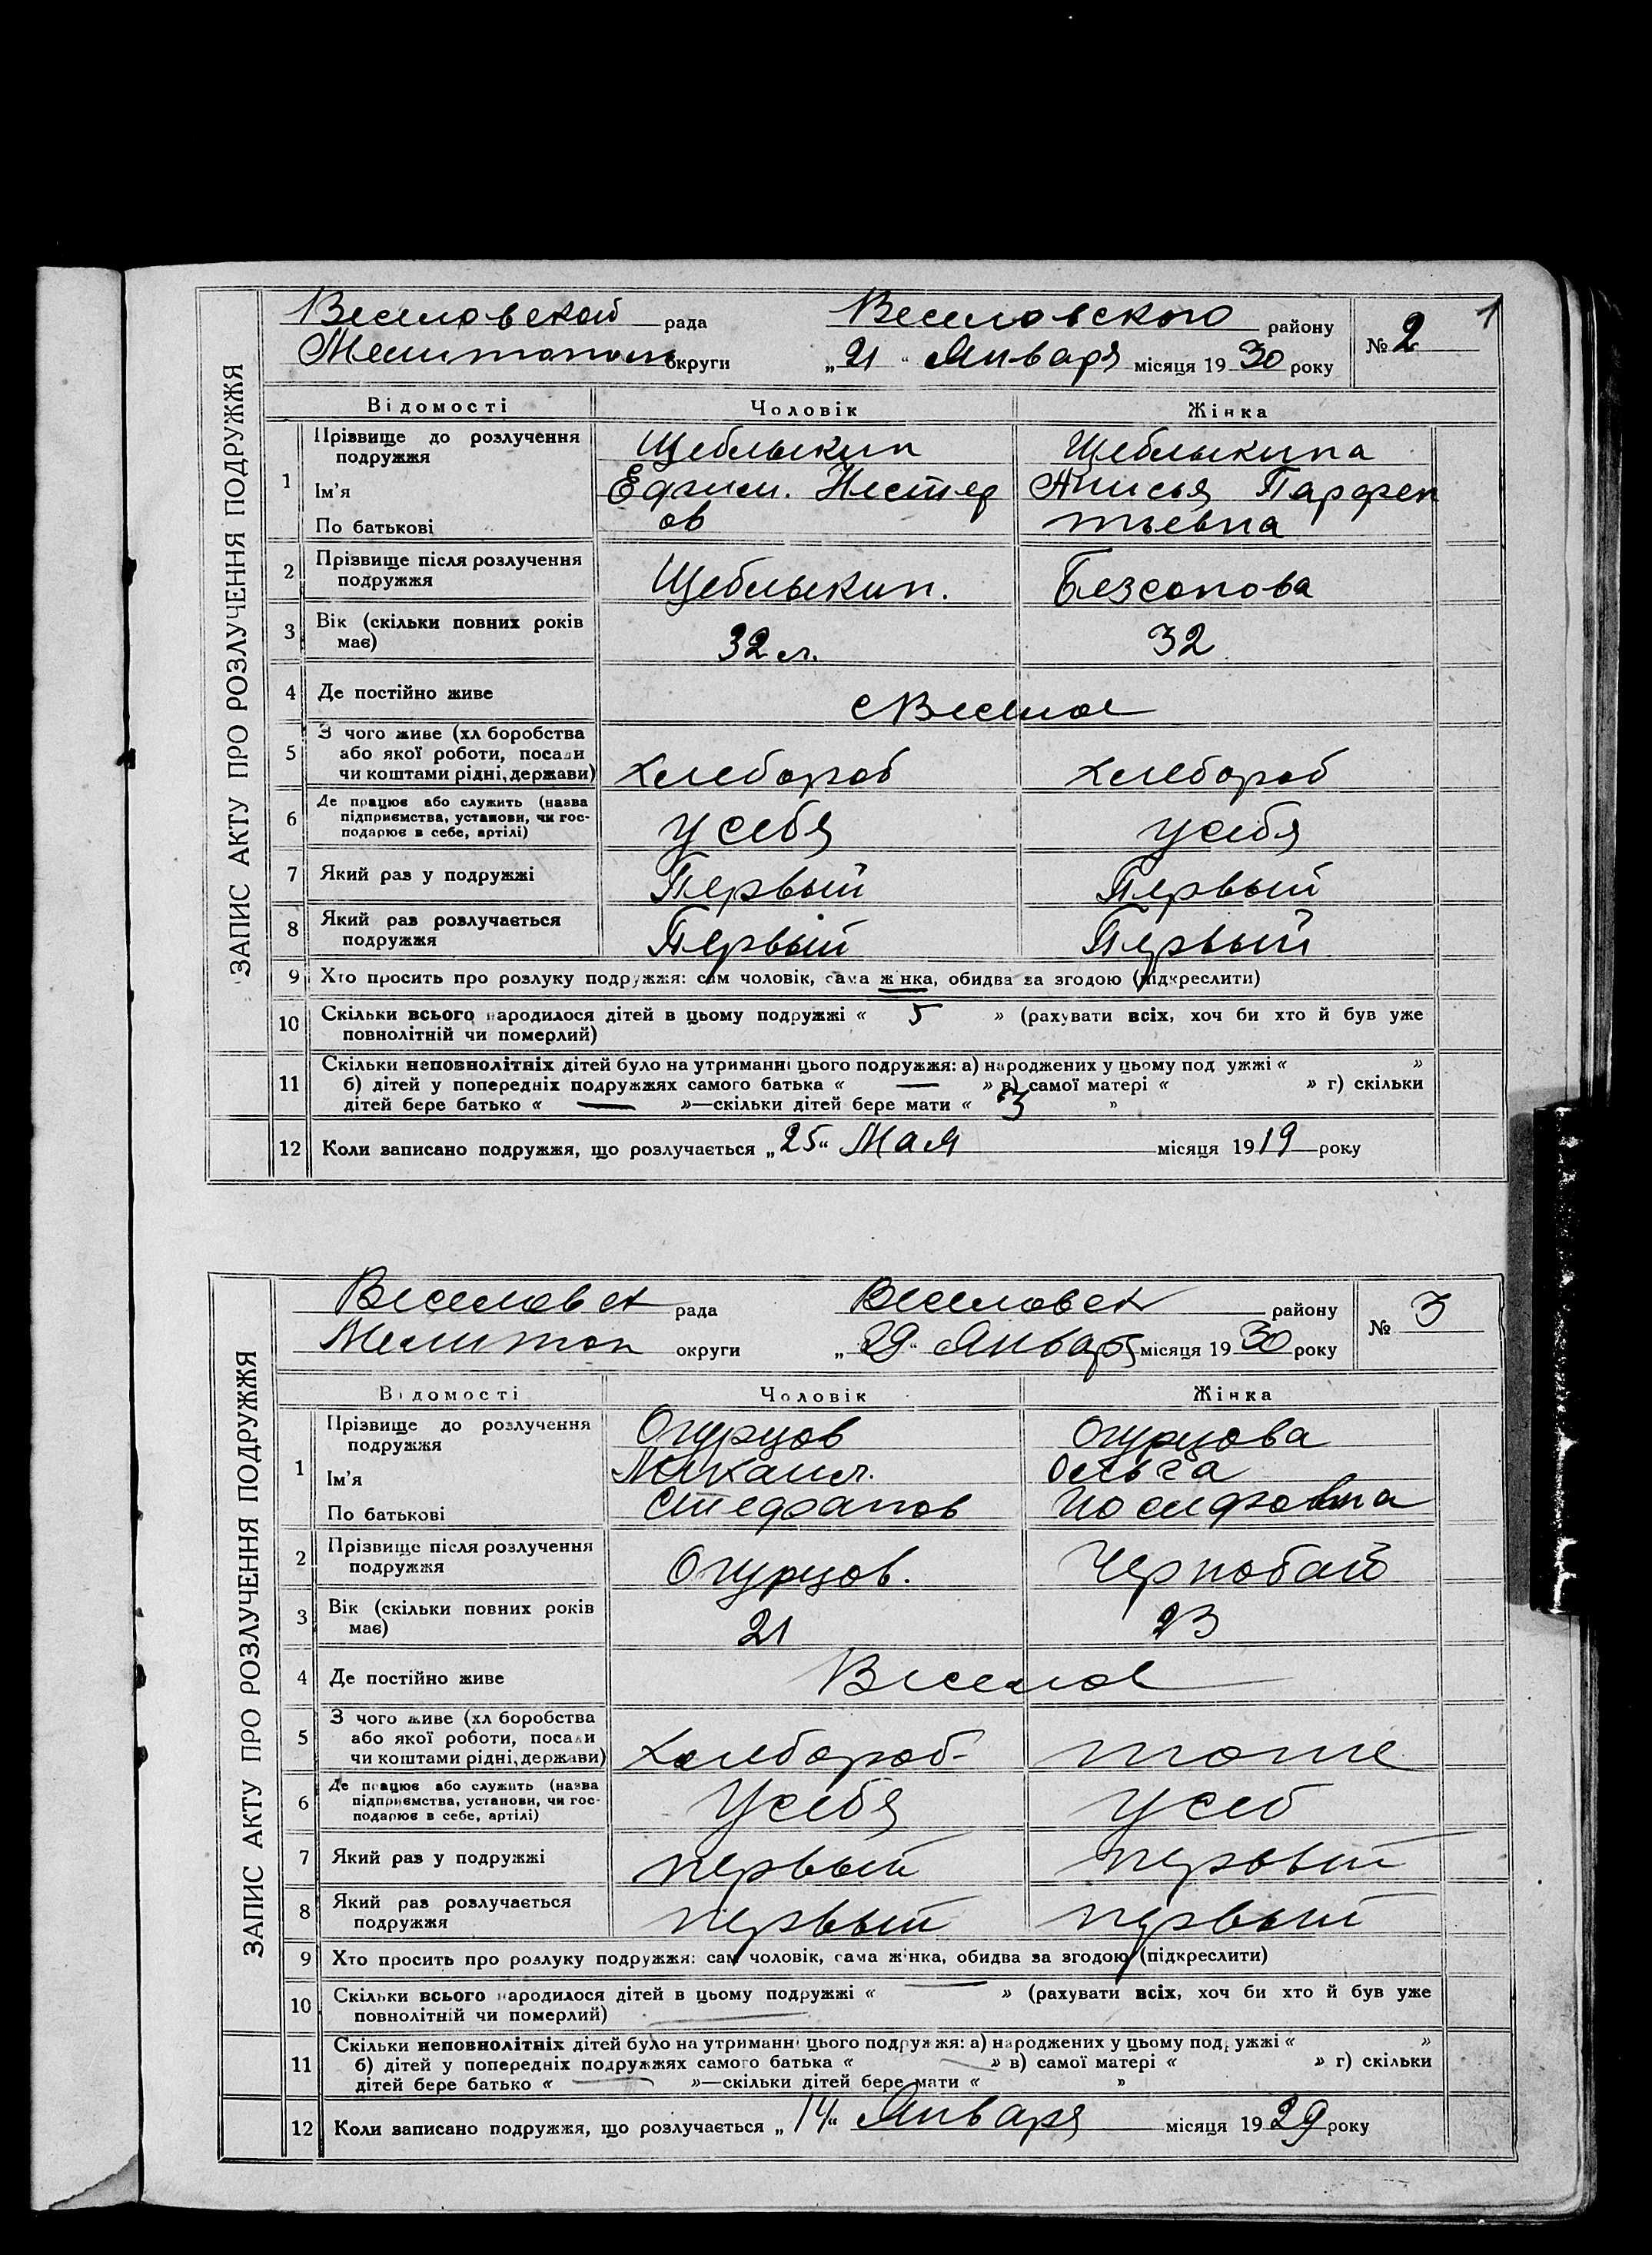 1
ЗАПИС АКТУ ПРО РОЗЛУЧЕННЯ ПОДРУЖЖЯ
Веселовской рада Веселовского району № 2
Мелитополь округи „21“ Января місяця 1930 року
Відомості Чоловік Жінка
1 Прізвище до розлучення подружжя Щеблыкин Щеблыкина
Ім'я Ефим. Нестер Анисья Парфен
По батькові ов тьевна
2 Прізвище після розлучення подружжя Щеблыкин. Безсонова
3 Вік (скільки повних років має) 32 л. 32
4 Де постійно живе с Веселое
5 З чого живе (хл боробства або якої роботи, посади чи коштами рідні, держави) Хлебороб Хлебороб
6 Де працює або служить (назва підприємства, установи, чи господарює в себе, артілі) у себя у себя
7 Який раз у подружжі Первый Первый
8 Який раз розлучається подружжя Первый Первый
9 Хто просить про розлуку подружжя: сам чоловік, сама жінка, обидва за згодою (підкреслити)
10 Скільки всього народилося дітей в цьому подружжі « 5 » (рахувати всіх, хоч би хто й був уже
повнолітній чи померлий)
11 Скільки неповнолітніх дітей було на утриманні цього подружжя: а) народжених у цьому подружжі « »
б) дітей у попередніх подружжях самого батька « — » в) самої матері « » г) скільки
дітей бере батько « — »—скільки дітей бере мати « 3 »
12 Коли записано подружжя, що розлучається „25“ Мая місяця 1919 року
ЗАПИС АКТУ ПРО РОЗЛУЧЕННЯ ПОДРУЖЖЯ
Веселовск рада Веселовск району № 3
Мелитоп округи „29“ Января місяця 1930 року
Відомості Чоловік Жінка
1 Прізвище до розлучення подружжя Огурцов Огурцова
Ім'я Михаил. Ольга
По батькові Стефанов Иосифовна
2 Прізвище після розлучення подружжя Огурцов. Чернобай
3 Вік (скільки повних років має) 21 23
4 Де постійно живе Веселое
5 З чого живе (хл боробства або якої роботи, посади чи коштами рідні, держави) Хлебороб- тоже
6 Де працює або служить (назва підприємства, установи, чи господарює в себе, артілі) У себя у себ
7 Який раз у подружжі первый первый
8 Який раз розлучається подружжя первый первый
9 Хто просить про розлуку подружжя: сам чоловік, сама жінка, обидва за згодою (підкреслити)
10 Скільки всього народилося дітей в цьому подружжі « — » (рахувати всіх, хоч би хто й був уже
повнолітній чи померлий)
11 Скільки неповнолітніх дітей було на утриманні цього подружжя: а) народжених у цьому подружжі « »
б) дітей у попередніх подружжях самого батька « » в) самої матері « » г) скільки
дітей бере батько « — »—скільки дітей бере мати « »
12 Коли записано подружжя, що розлучається „14“ Января місяця 1929 року